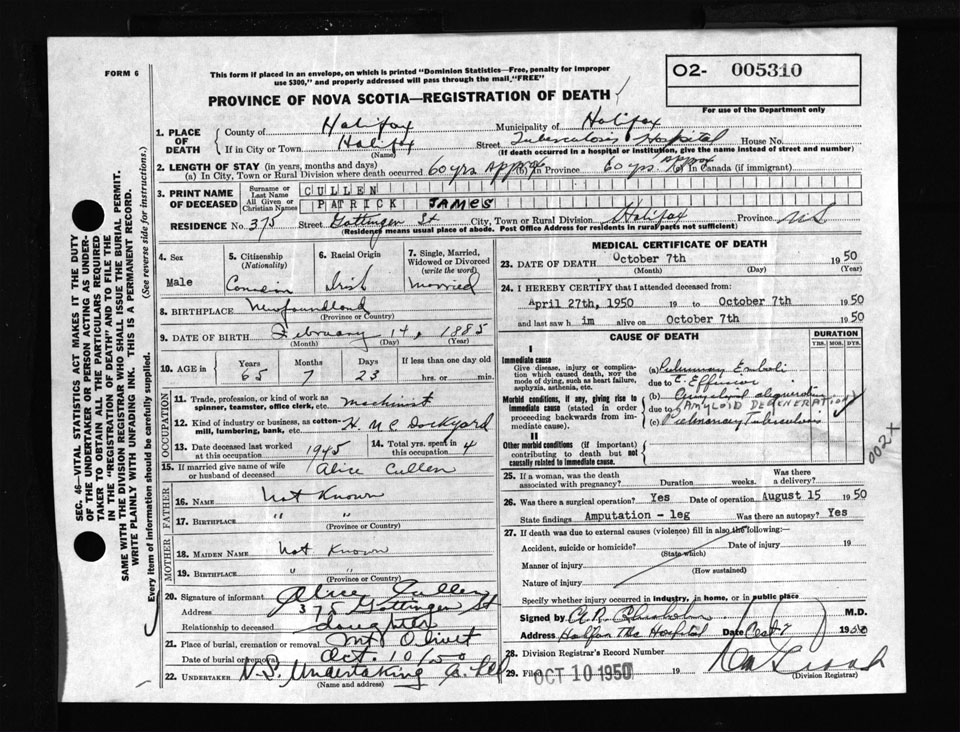 FORM 6
This form if placed in an envelope, on which is printed "Dominion Statistics—Free, penalty for improper
use $300," and properly addressed will pass through the mail "FREE"
O2- 005310
For use of the Department only
PROVINCE OF NOVA SCOTIA—REGISTRATION OF DEATH
1. PLACE OF DEATH
County of Halifax Municipality of Halifax
If in City or Town Halifax Street Tuberculosis Hospital House No.
(Name) (If death occurred in a hospital or institution, give the name instead of street and number)
2. LENGTH OF STAY (in years, months and days)
(a) In City, Town or Rural Division where death occurred 60 yrs approx (b) in Province 60 yrs approx (c) In Canada (if immigrant)
3. PRINT NAME OF DECEASED
Surname or Last Name CULLEN
All Given or Christian Names PATRICK JAMES
RESIDENCE No. 375 Street Gottingen St City, Town or Rural Division Halifax Province N.S
(Residence means usual place of abode. Post Office Address for residents in rural parts not sufficient)
4. Sex
Male
5. Citizenship
(Nationality)
6. Racial Origin
Irish
7. Single, Married, Widowed or Divorced
(write the word)
Married
8. BIRTHPLACE Newfoundland
(Province or Country)
9. DATE OF BIRTH February 14, 1885
(Month) (Day) (Year)
10. AGE in Years Months Days If less than one day old
65 7 23 hrs. or min.
OCCUPATION
11. Trade, profession, or kind of work as
spinner, teamster, office clerk, etc. Machinist
12. Kind of industry or business, as cotton-
mill, lumbering, bank, etc. H. M C Dockyard
13. Date deceased last worked
at this occupation 1945
14. Total yrs. spent in
this occupation 4
15. If married give name of wife
or husband of deceased Alice Cullen
FATHER
16. NAME Not Known
17. BIRTHPLACE " "
(Province or Country)
MOTHER
18. MAIDEN NAME Not Known
19. BIRTHPLACE " "
(Province or Country)
20. Signature of informant Alice Cullen
Address 375 Gottingen St
Relationship to deceased daughter
21. Place of burial, cremation or removal Mt Olivet
Date of burial or removal Oct. 10/50
22. UNDERTAKER N.S. Undertaking Co. Ltd
(Name and address)
MEDICAL CERTIFICATE OF DEATH
23. DATE OF DEATH October 7th 1950
(Month) (Day) (Year)
24. I HEREBY CERTIFY that I attended deceased from:
April 27th, 1950 19 to October 7th 1950
and last saw h im alive on October 7th 1950
CAUSE OF DEATH
DURATION
YRS. MOS. DYS.
I
Immediate cause
Give disease, injury or complica-
tion which caused death, NOT the
mode of dying, such as heart failure,
asphyxia, asthenia, etc.
(a) Pulmonary Emboli
due to E. Effusion
Morbid conditions, if any, giving rise to
immediate cause (stated in order
proceeding backwards from im-
mediate cause).
(b) Amyloid degeneration
due to (AMYLOID DEGENERATION)
(c) Pulmonary Tuberculosis
II
Other morbid conditions (if important)
contributing to death but not
causally related to immediate cause.
002+
25. If a woman, was the death
associated with pregnancy? Duration weeks. Was there
a delivery?
26. Was there surgical operation? Yes Date of operation August 15 1950
State findings Amputation - leg Was there an autopsy? Yes
27. If death was due to external causes (violence) fill in also the following:—
Accident, suicide or homicide? Date of injury 19
(State which)
Manner of injury
(How sustained)
Nature of injury
Specify whether injury occurred in industry, in home, or in public place
Signed by A. R. Chisholm M.D.
Address Halifax Tbc Hospital Date Oct 7 1950
28. Division Registrar's Record Number
29. Filed OCT 10 1950 19
(Division Registrar)
SEC. 46—VITAL STATISTICS ACT MAKES IT THE DUTY
OF THE UNDERTAKER OR PERSON ACTING AS UNDER-
TAKER TO OBTAIN ALL THE PARTICULARS REQUIRED
IN THE "REGISTRATION OF DEATH" AND TO FILE THE
SAME WITH THE DIVISION REGISTRAR WHO SHALL ISSUE THE BURIAL PERMIT.
WRITE PLAINLY WITH UNFADING INK. THIS IS A PERMANENT RECORD.
Every item of information should be carefully supplied. (See reverse side for instructions.)